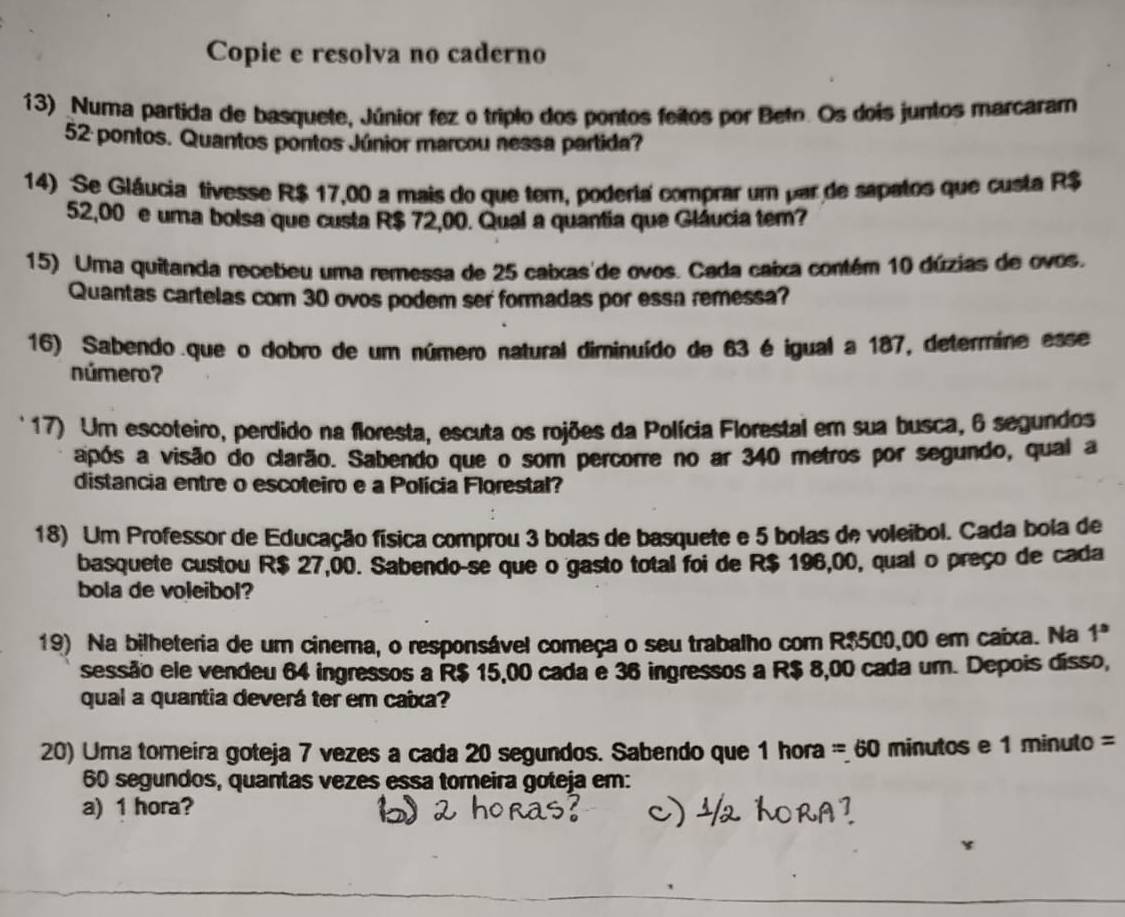 Copie e resolva no caderno
13) Numa partida de basquete, Júnior fez o triplo dos pontos feitos por Beto. Os dois juntos marcaram
52 pontos. Quantos pontos Júnior marcou nessa partida?
14) Se Gláucia tivesse R$ 17,00 a mais do que tem, poderia comprar um par de sapatos que custa R$
52,00 e uma bolsa que custa R$ 72,00. Qual a quantia que Gláucia tem?
15) Uma quitanda recebeu uma remessa de 25 caixas de ovos. Cada caixa contém 10 dúzias de ovos.
Quantas cartelas com 30 ovos podem ser formadas por essa remessa?
16) Sabendo que o dobro de um número natural diminuído de 63 é igual a 187, determine esse
número?
17) Um escoteiro, perdido na floresta, escuta os rojões da Polícia Florestal em sua busca, 6 segundos
após a visão do clarão. Sabendo que o som percorre no ar 340 metros por segundo, qual a
distancia entre o escoteiro e a Polícia Florestal?
18) Um Professor de Educação física comprou 3 bolas de basquete e 5 bolas de voleibol. Cada bola de
basquete custou R$ 27,00. Sabendo-se que o gasto total foi de R$ 196,00, qual o preço de cada
bola de voleibol?
19) Na bilheteria de um cinema, o responsável começa o seu trabalho com R$500,00 em caixa. Na 1ª
sessão ele vendeu 64 ingressos a R$ 15,00 cada e 36 ingressos a R$ 8,00 cada um. Depois disso,
qual a quantia deverá ter em caixa?
20) Uma torneira goteja 7 vezes a cada 20 segundos. Sabendo que 1 hora = 60 minutos e 1 minuto =
60 segundos, quantas vezes essa torneira goteja em:
a) 1 hora? b) 2 horas? c) 1/2 hORA?